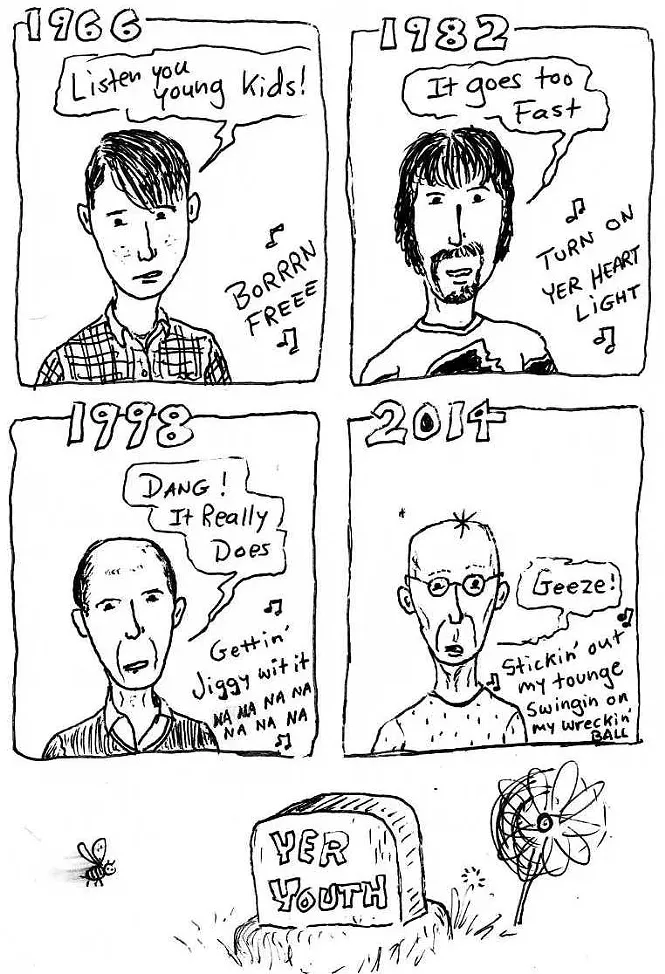 1966
Listen you
young Kids!
BORRRN
FREEE
1982
It goes too
Fast
TURN ON
YER HEART
LiGHT
1998
DANG!
It Really
Does
Gettin'
Jiggy wit it
NA NA NA NA
NA NA NA
2014
Geeze!
Stickin' out
my tounge
Swingin on
my wreckin'
BALL
YER
YOUTH